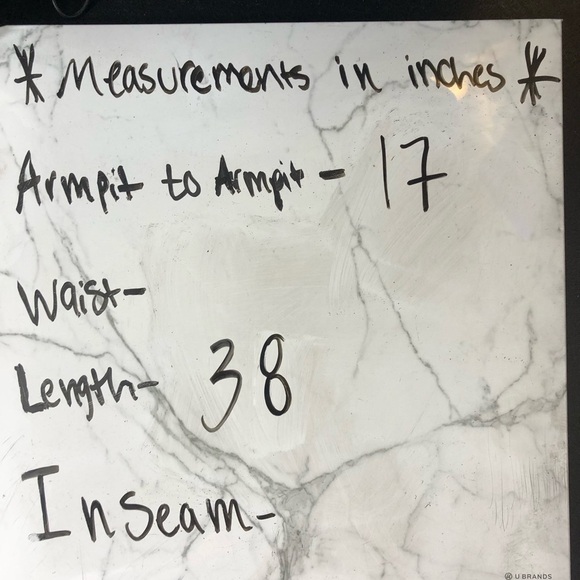 * Measurements in inches *
Armpit to Armpit - 17
Waist-
Length- 38
Inseam-
U BRANDS